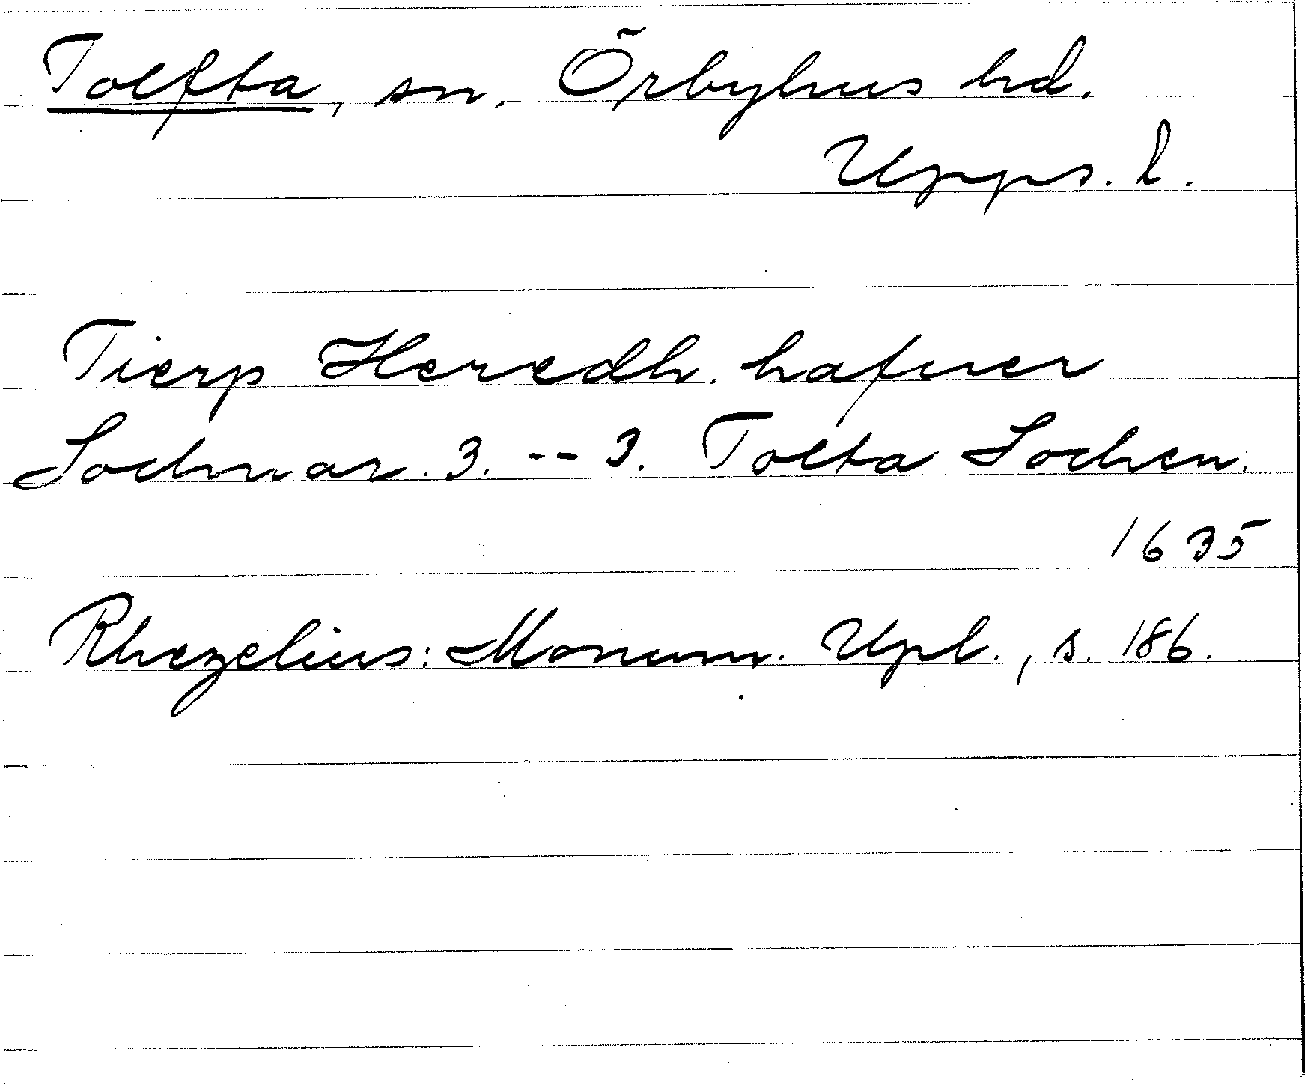 Tolfta, sn. Örbyhus hd.
Upps. l.
Tierp Heredh. hafuer
Sochnar. 3. -- 3. Tolta Sochen.
1635
Rhezelius: Monum. Upl., s. 186.